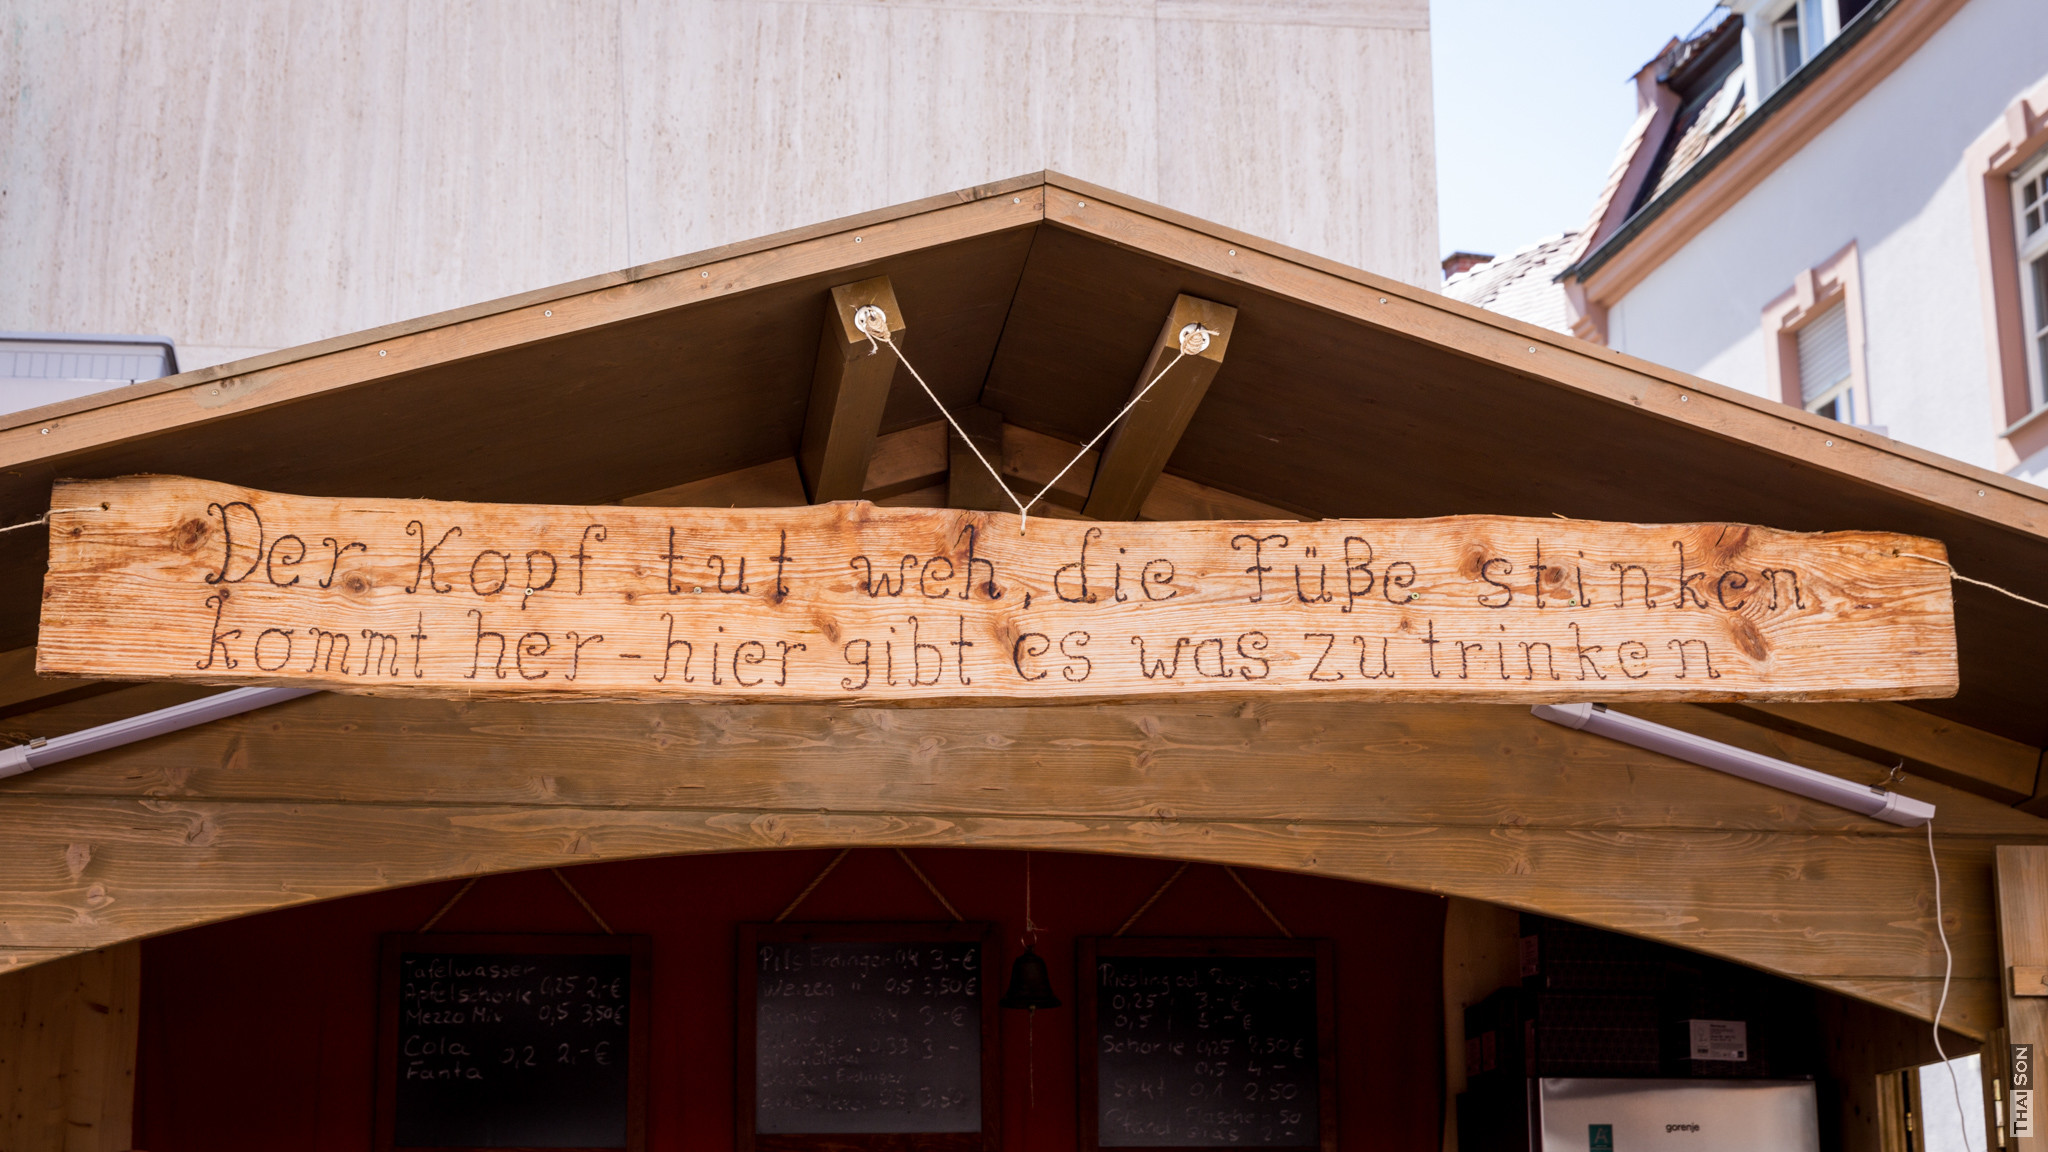 Der Kopf tut weh, die Füße stinken
kommt her - hier gibt es was zu trinken
Tafelwasser
Apfelschorle 0,25 2,-€
Mezzo Mix 0,5 3,50€
Cola 0,2 2,-€
Fanta
Pils Erdinger 0,4 3,-€
Weizen " 0,5 3,50€
0,33 3,-
Erdinger
Riesling od.
0,25 3,-€
0,5
Schorle 0,25 2,50€
0,5 4,-
Sekt 0,1 2,50
gorenje
THAI SON